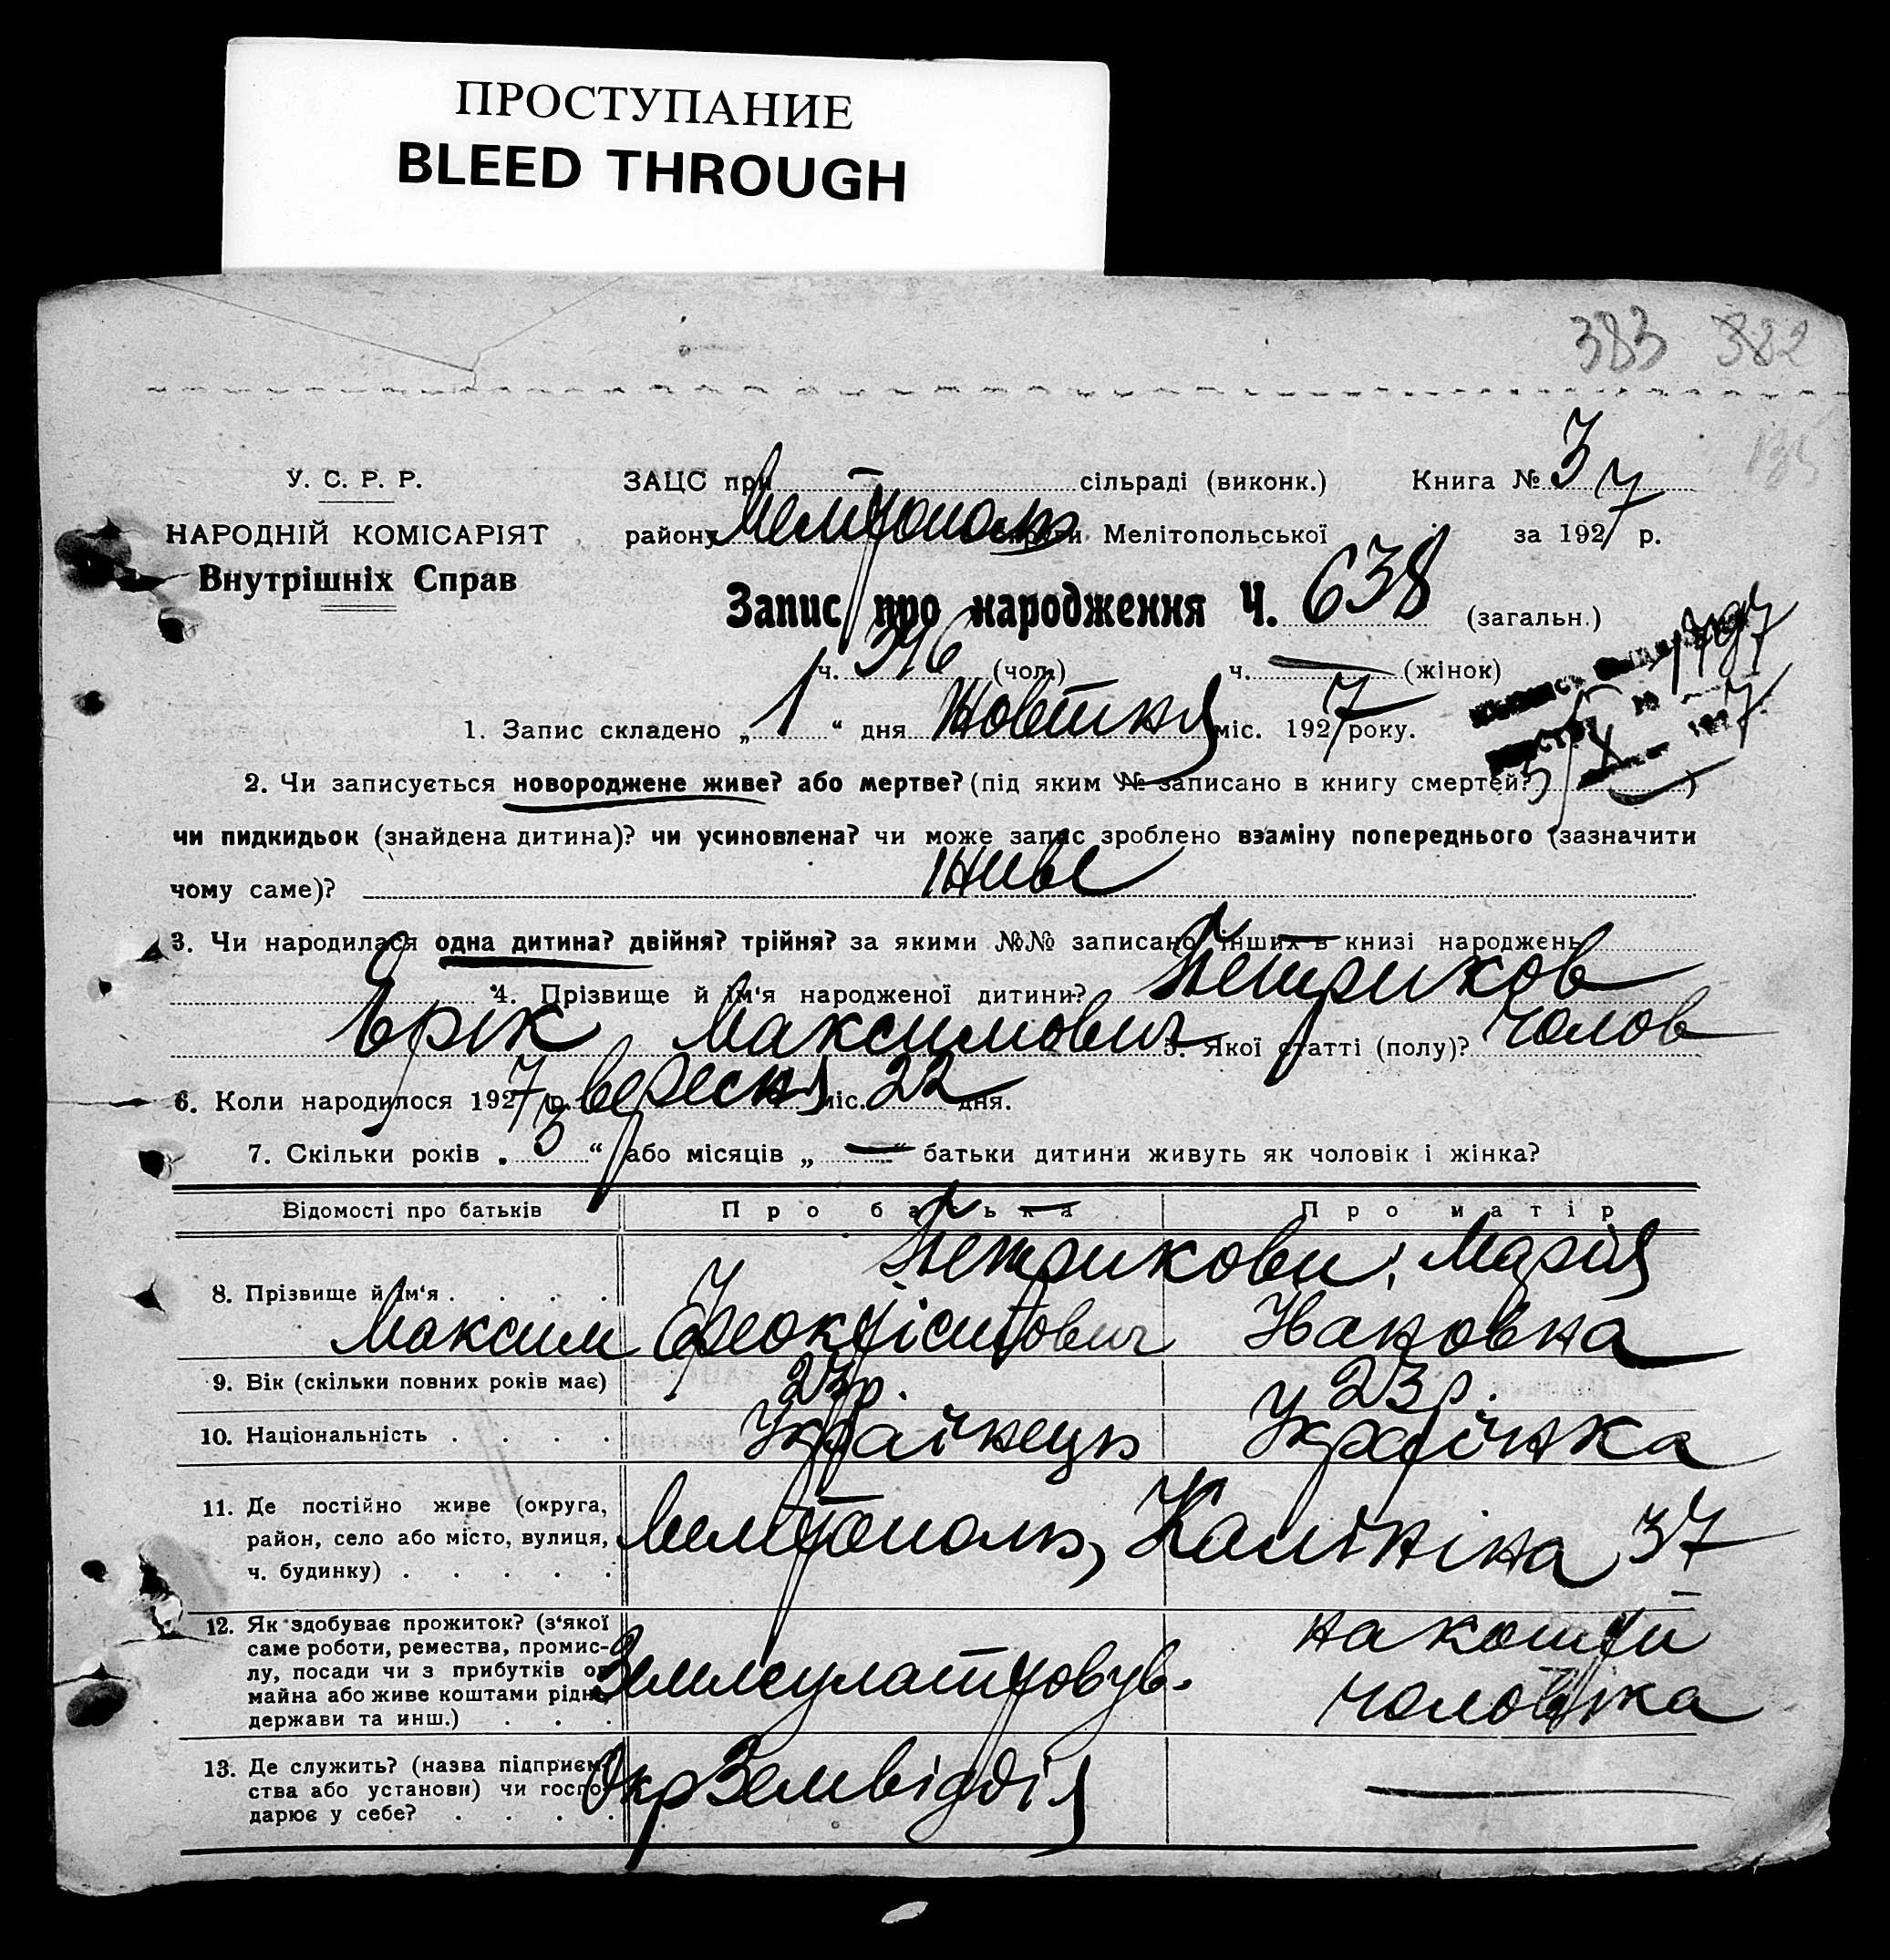 ПРОСТУПАНИЕ
BLEED THROUGH
383 382
135
У. С. Р. Р.
НАРОДНІЙ КОМІСАРІЯТ
Внутрішніх Справ
ЗАЦС при сільраді (виконк.) Книга № 3
району Мелітополь округи Мелітопольської за 1927 р.
Запис про народження Ч. 638 (загальн.)
ч. 346 (чол.) ч. — (жінок)
1. Запис складено „ 1 “ дня Жовтня міс. 1927 року.
2. Чи записується новороджене живе? або мертве? (під яким № записано в книгу смертей? )
чи пидкидьок (знайдена дитина)? чи усиновлена? чи може запис зроблено взаміну попереднього (зазначити
чому саме)? живе
3. Чи народилася одна дитина? двійня? трійня? за якими №№ записано інших в книзі народжень
4. Прізвище й ім‘я народженої дитини? Петриков
Ерік Максимович 5. Якої статті (полу)? чолов
6. Коли народилося 1927 р. вересня міс. 22 дня.
7. Скільки років „ 3 “ або місяців „ — “ батьки дитини живуть як чоловік і жінка?
Відомості про батьків Про батька Про матір
8. Прізвище й ім‘я . . . . Петрикови; Марія
Максим Феоктістович
9. Вік (скільки повних років має) 23 р. 23 р.
10. Національність . . . . Українець Українка
11. Де постійно живе (округа,
район, село або місто, вулиця,
ч. будинку) . . . . . Мелітополь, Калініна 37
12. Як здобуває прожиток? (з‘якої
саме роботи, ремества, промис-
лу, посади чи з прибутків од
майна або живе коштами рідні,
держави та инш.) . . . Землеулаштовув. на кошти
чоловіка
13. Де служить? (назва підприєм-
ства або установи) чи госпо-
дарює у себе? . . . . ОкрЗемвідділ —